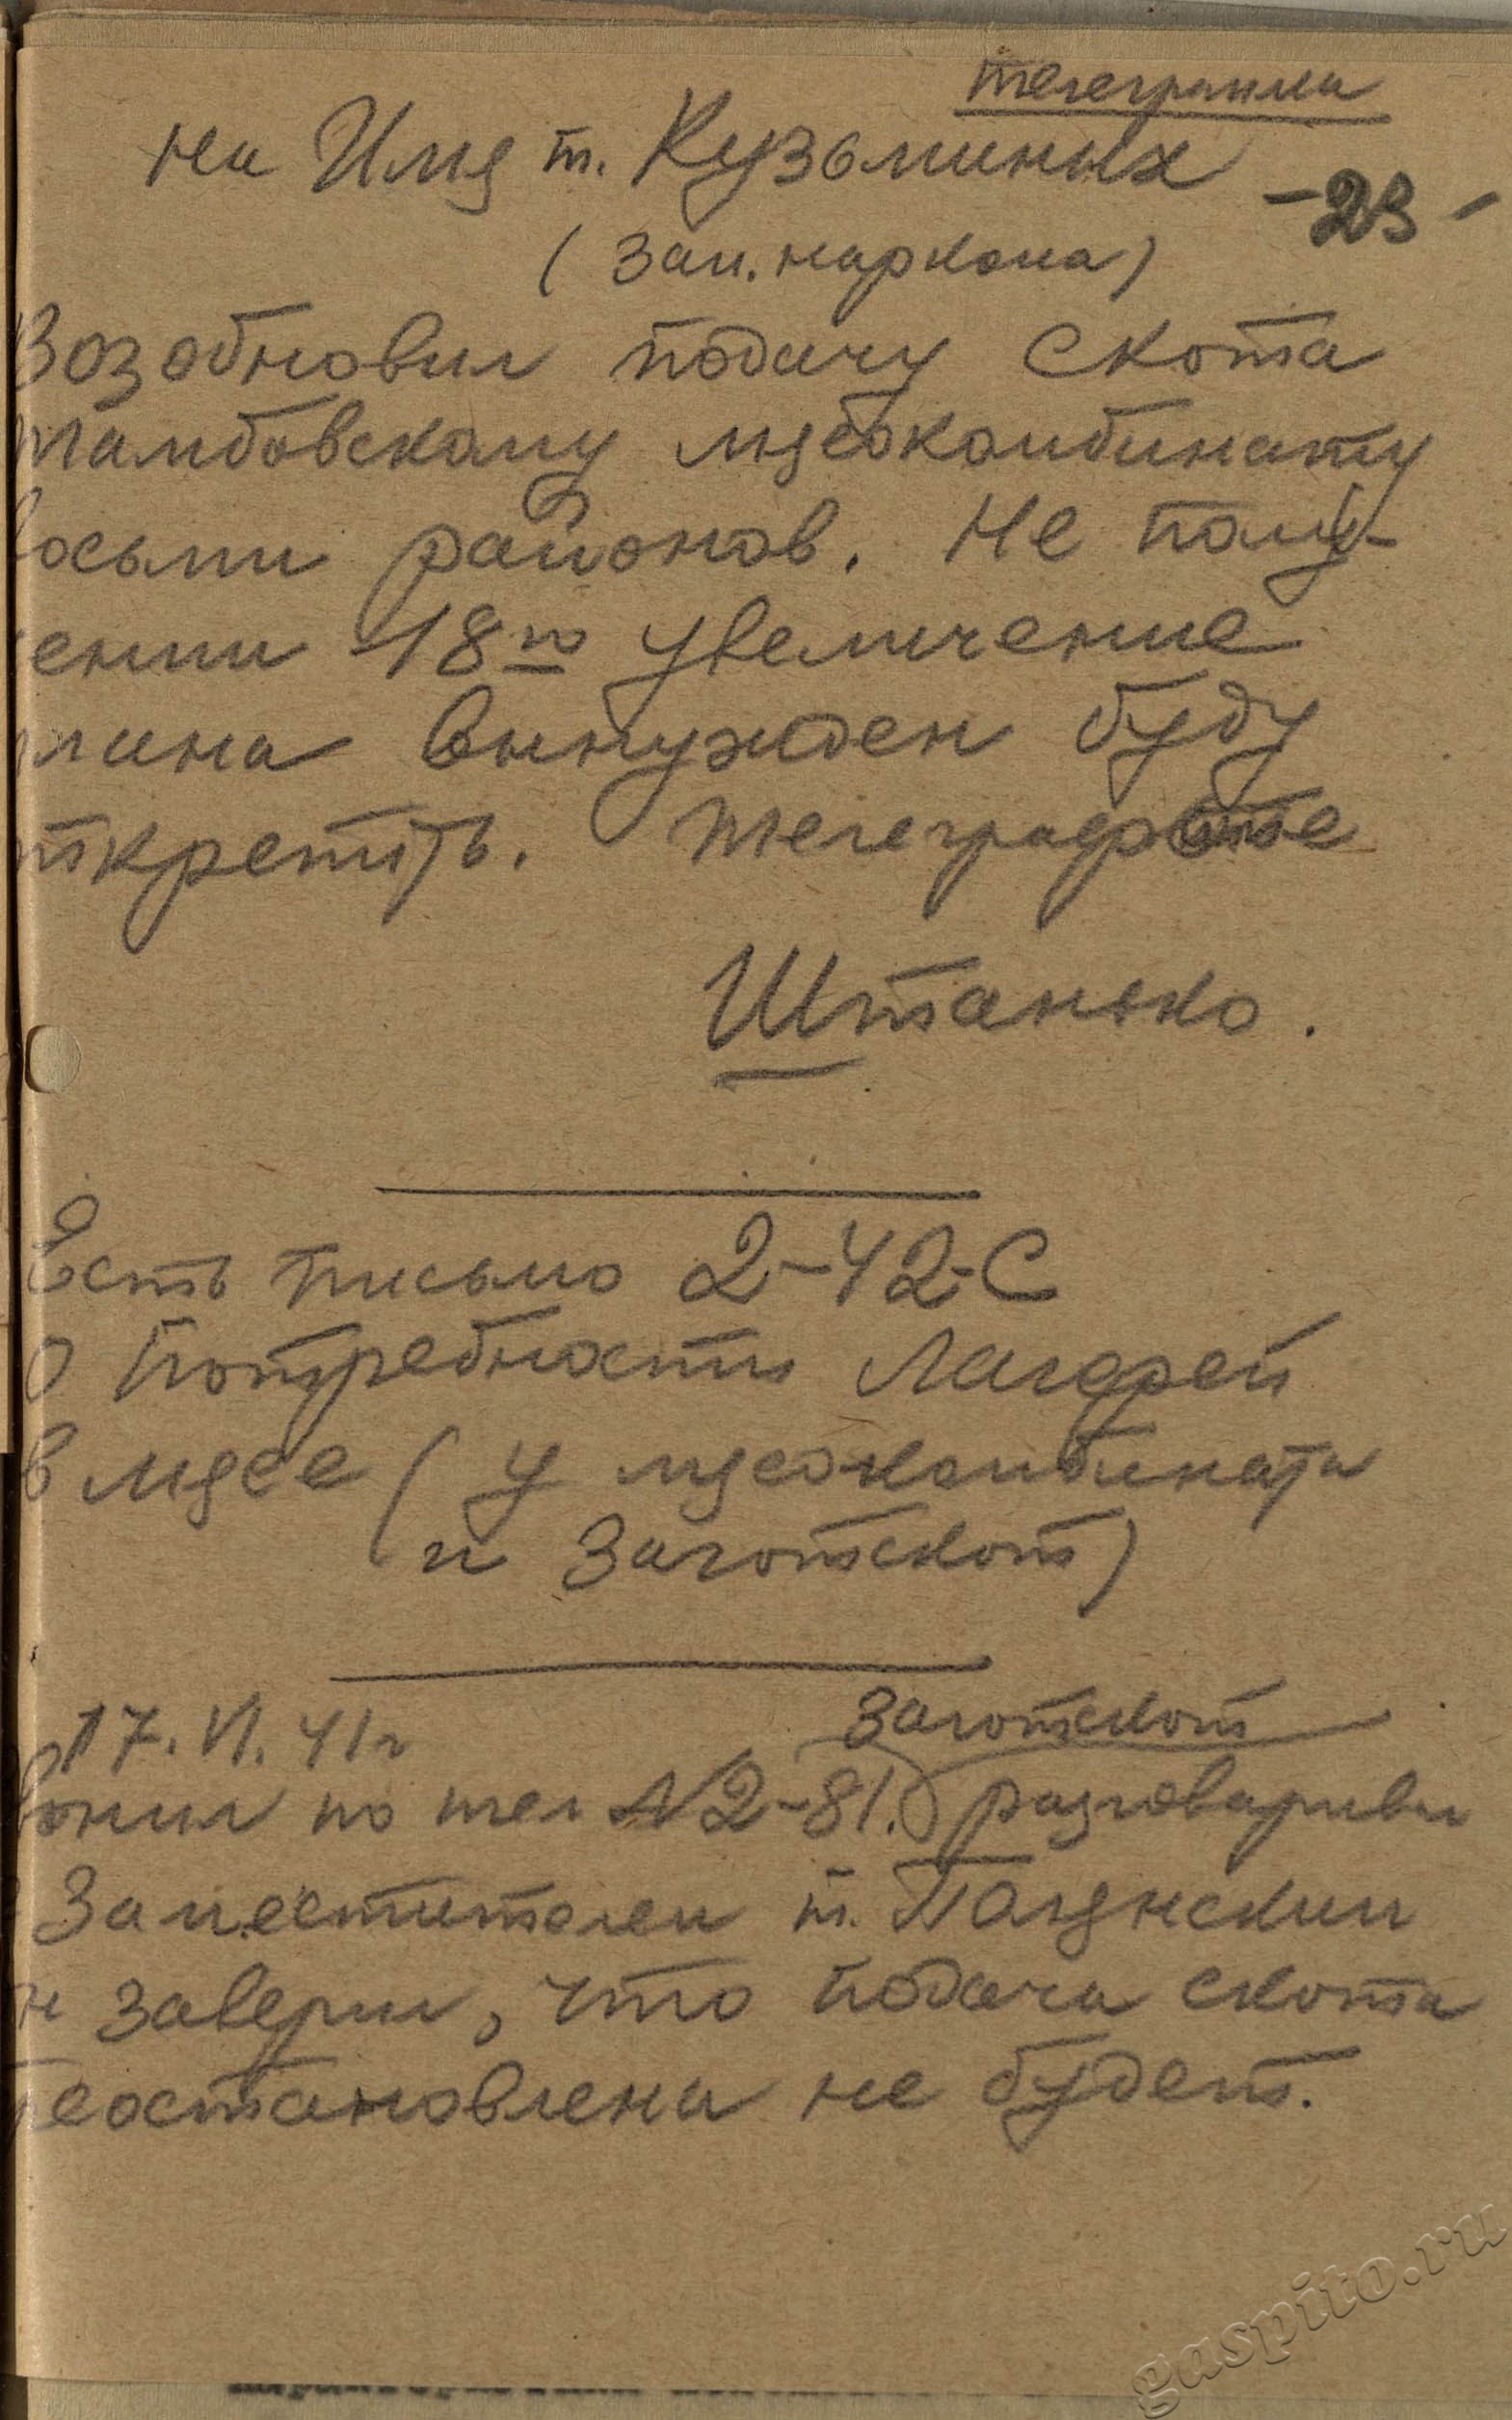 телеграмма
на Имя т. Кузьминых
-23-
(зам. наркома)
Возобновил подачу скота
тамбовскому мясокомбинату
восьми районов. Не полу-
чении 18го увеличение
плана вынужден буду
Штанько.
Есть письмо 2-42-С
О потребности Лагерей
в мясе (у мясокомбината
и Заготскот)
17.VI.41г
Заготскот
вонил по тел N2-81. разговаривал
Заместителем т.
н заверил, что подача скота
реостановлена не будет.
gaspito.ru